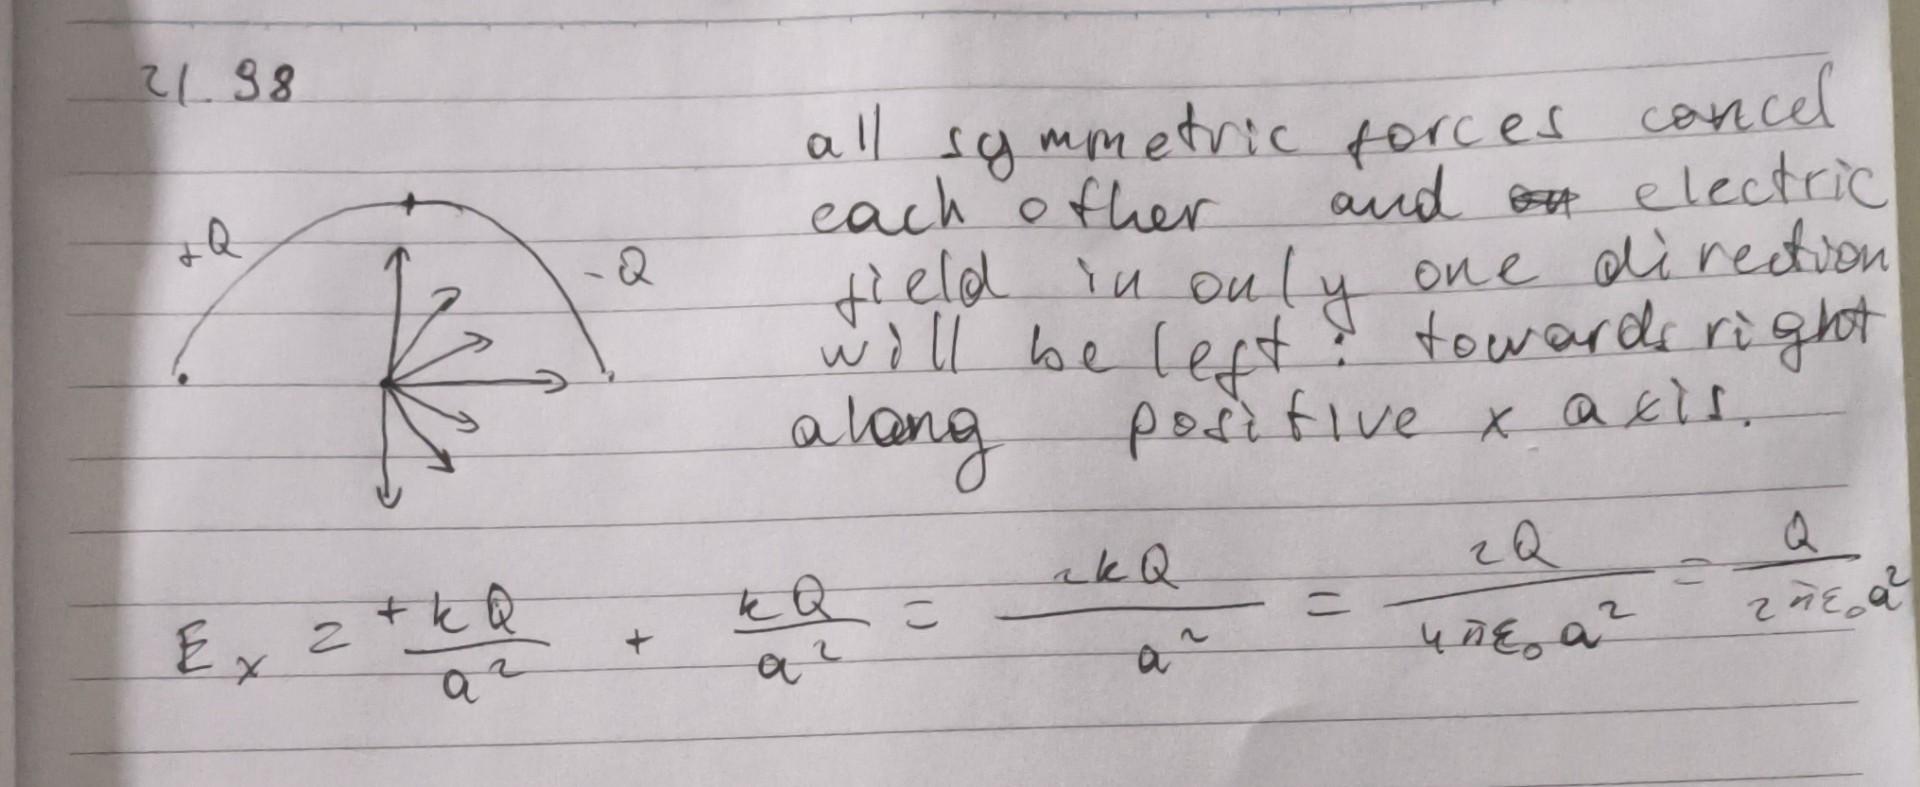 21.98
all symmetric forces cancel
each other and electric
field in only one direction
will be left: towards right
along positive x axis.
+Q
-Q
E_x = +kQ/a² + kQ/a² = 2kQ/a² = 2Q/4πε₀a² = Q/2πε₀a²